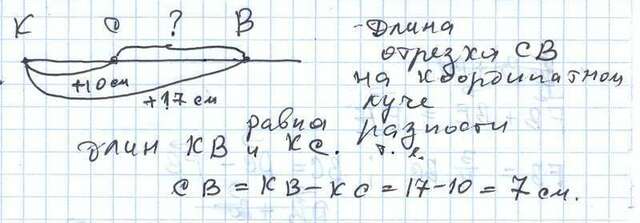 K C ? B
+10 см
+17 см
Длина
отрезка CB
на координатном
луче
равна разности
длин KB и KC. т. е.
CB = KB - KC = 17 - 10 = 7 см.